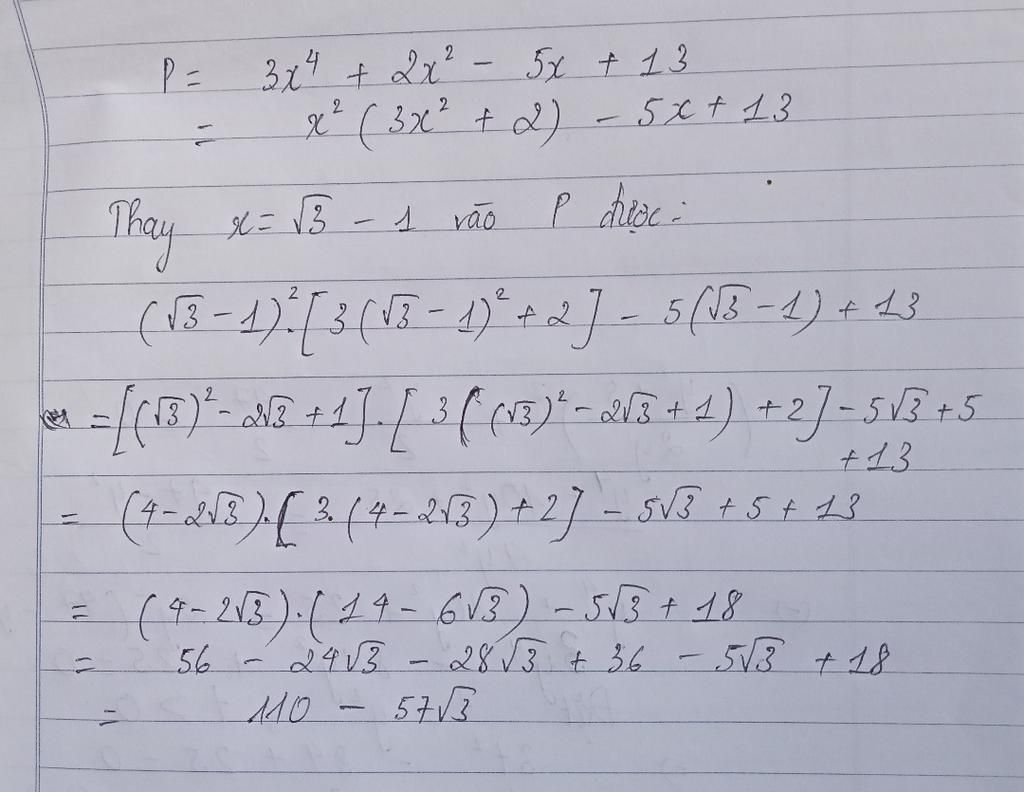 P = 3x⁴ + 2x² - 5x + 13
= x² (3x² + 2) - 5x + 13
Thay x = √3 - 1 vào P được:
(√3 - 1)².[3(√3 - 1)² + 2] - 5(√3 - 1) + 13
= [(√3)² - 2√3 + 1].[3((√3)² - 2√3 + 1) + 2] - 5√3 + 5
+ 13
= (4 - 2√3).[3.(4 - 2√3) + 2] - 5√3 + 5 + 13
= (4 - 2√3).(14 - 6√3) - 5√3 + 18
= 56 - 24√3 - 28√3 + 36 - 5√3 + 18
= 110 - 57√3